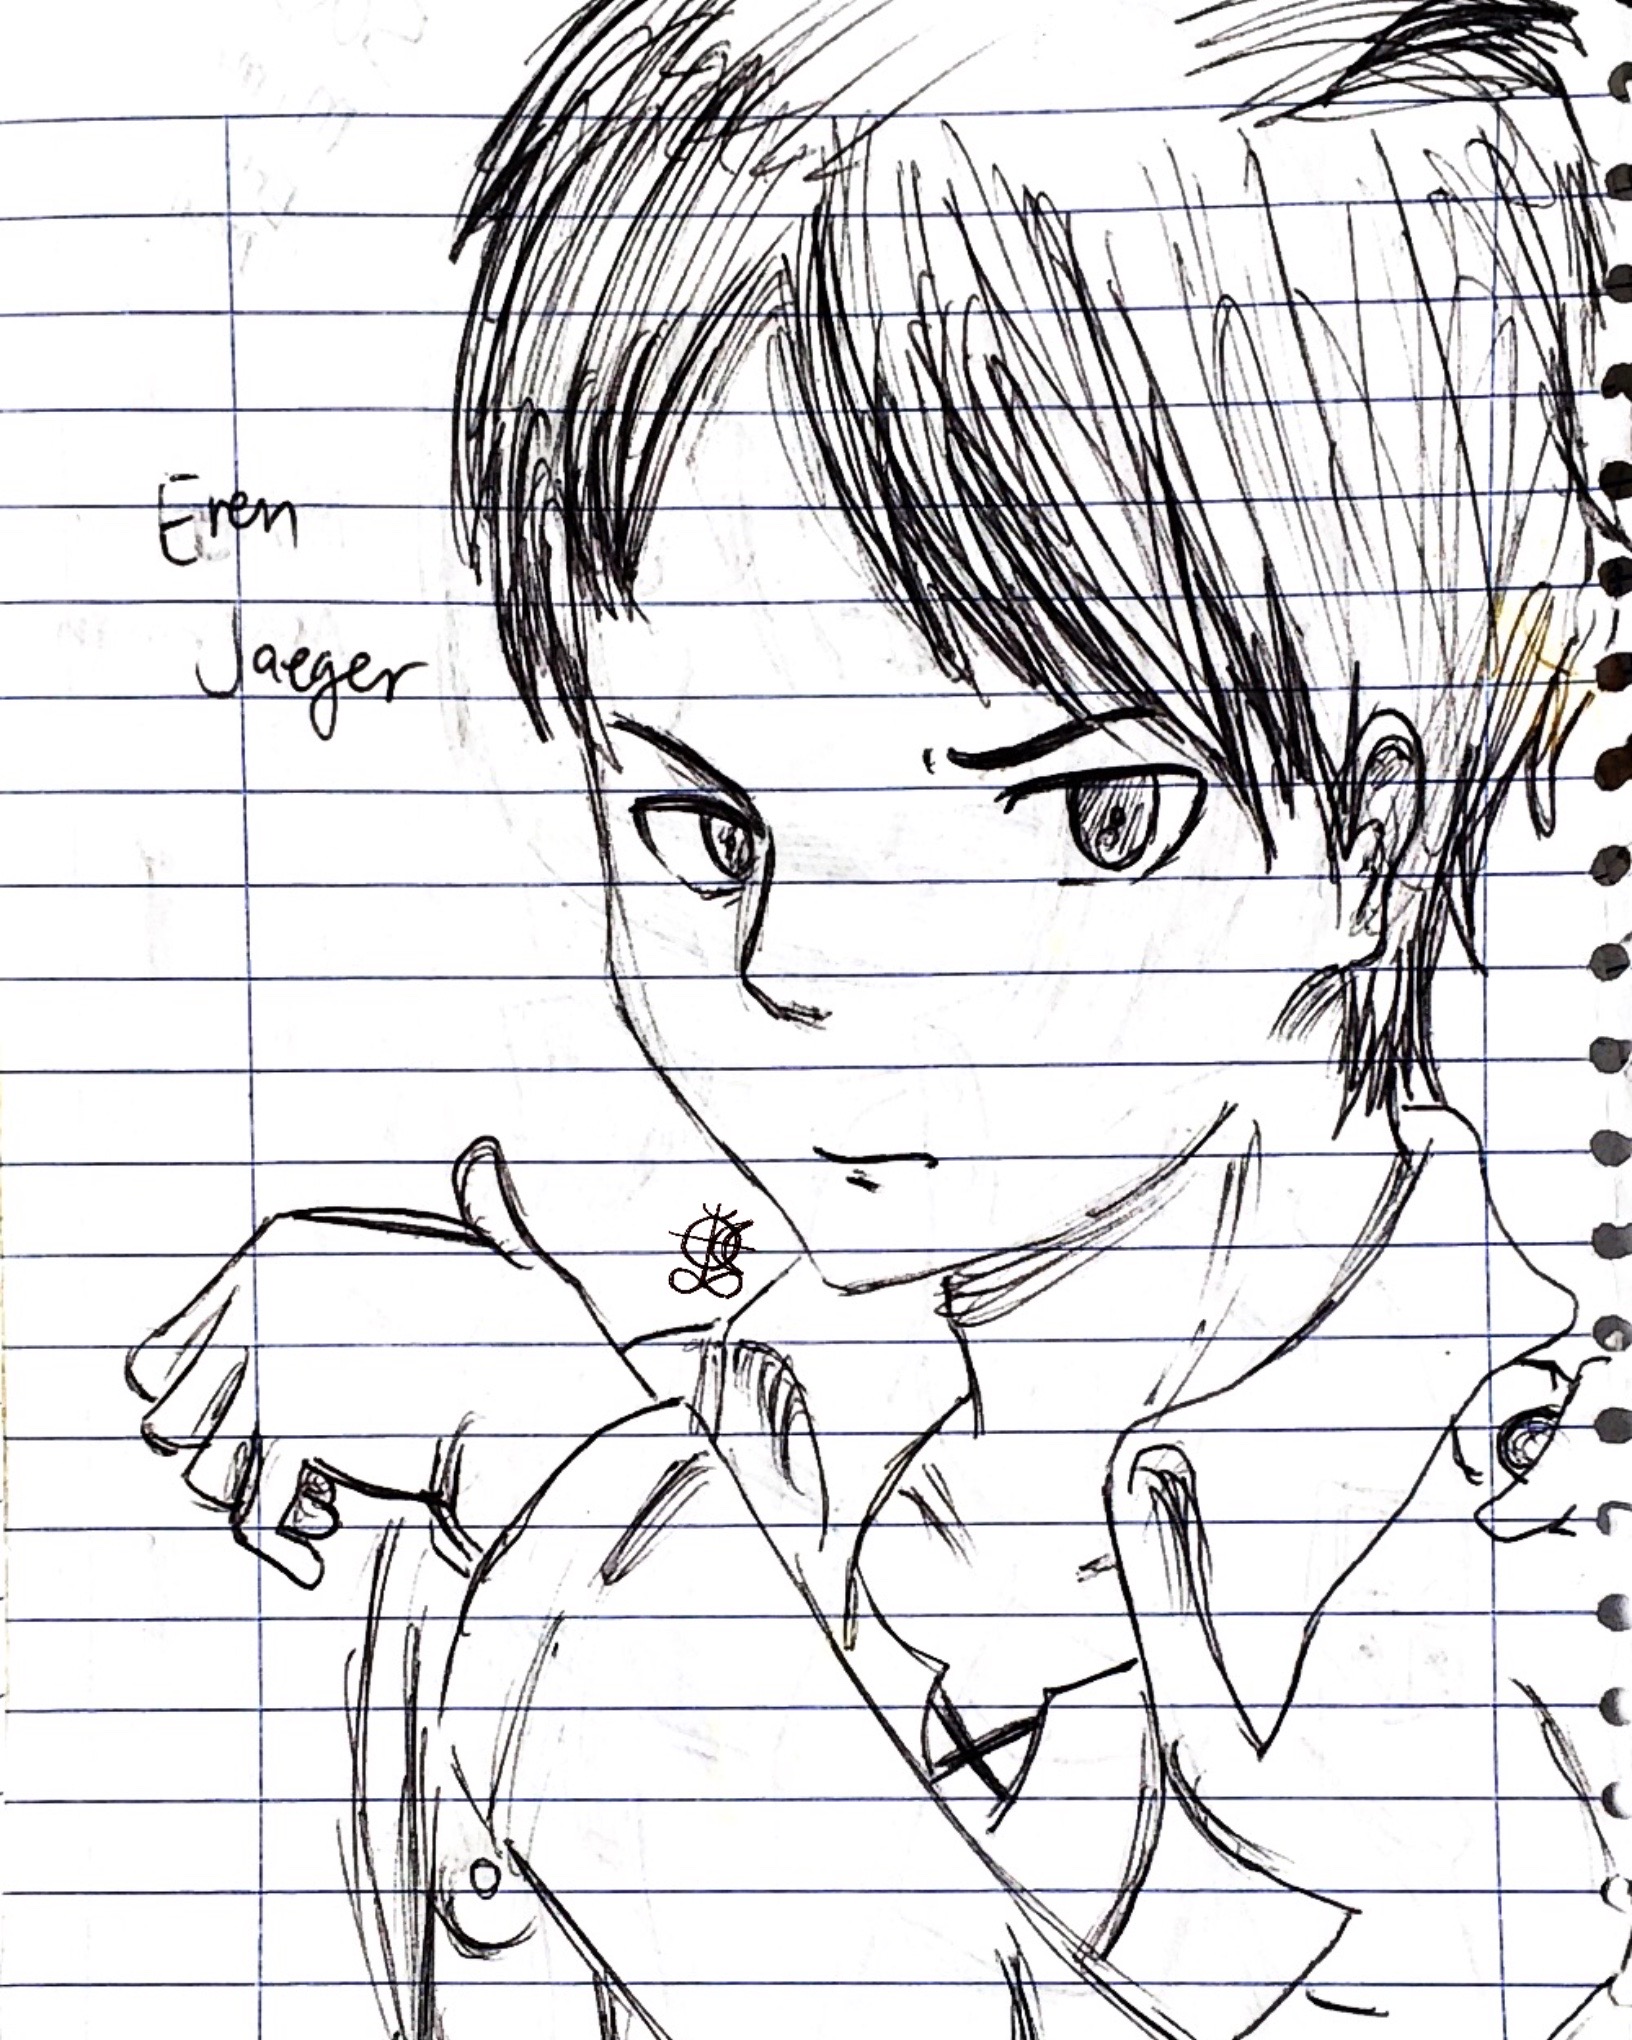 Eren
Jaeger